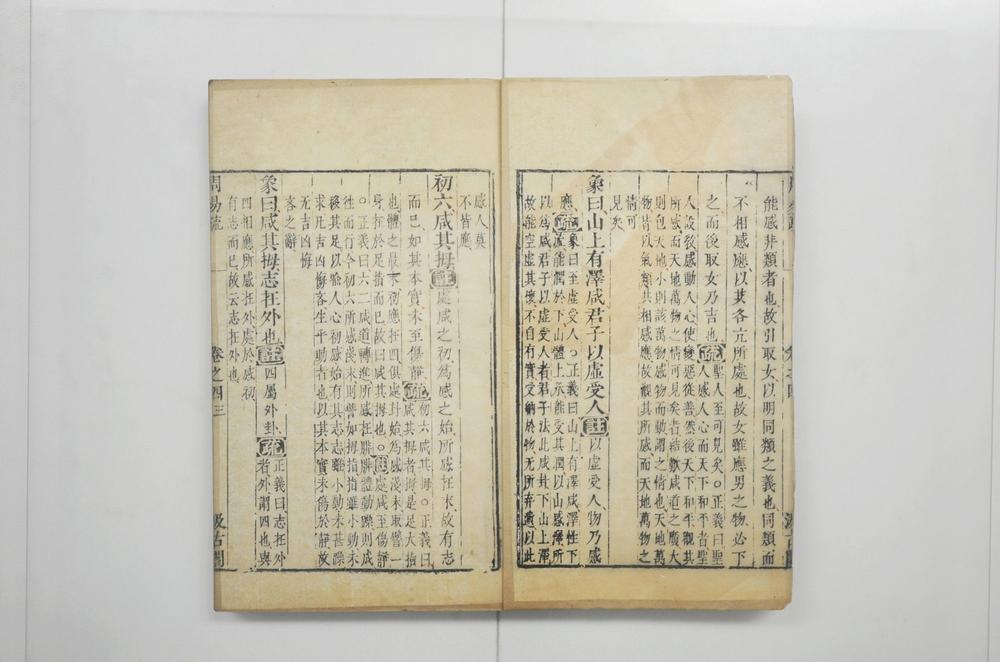 能感非類者也故引取女以明同類之義也同類而
不相感應以其各亢所處也故女雖應男之物必下
之而後取女乃吉也疏聖人至可見矣○正義曰聖
人感人心而天下和平者聖
人設教感動人心使變惡從善然後天下和平觀其
所感而天地萬物之情可見矣者結歎咸道之廣大
則包天地小則該萬物感物而動謂之情也天地萬
物皆以氣類共相感應故觀其所感而天地萬物之
情可
見矣
象曰山上有澤咸君子以虛受人註以虛受人物乃感
應疏象曰至虛受人○正義曰山上有澤咸澤性下
流能潤於下山體上承能受其潤以山感澤所
以為咸君子以虛受人者君子法此咸卦下山上澤
故能空虛其懷不自有實受納於物无所棄遺以此
感人莫
不皆應
初六咸其拇註處咸之初為感之始所感在末故有志
而已如其本實未至傷靜疏初六咸其拇○正義曰
咸其拇者拇是足大指
也體之最末初應在四俱處卦始為感淺末取譬一
身在於足指而已故曰咸其拇也○註處咸至傷靜
○正義曰六二咸道轉進所感在腓腓體動躁則成
往而行今初六所感淺末則譬如拇指指雖小動未
移其足以喻人心初感始有其志志雖小動未甚躁
求凡吉凶悔吝生乎動者也以其本實未傷於靜故
无吉凶悔
吝之辭
象曰咸其拇志在外也註四屬外卦疏正義曰志在外
者外謂四也與
四相應所感在外處於感初
有志而已故云志在外也
周易疏
卷之四
三
汲古閣